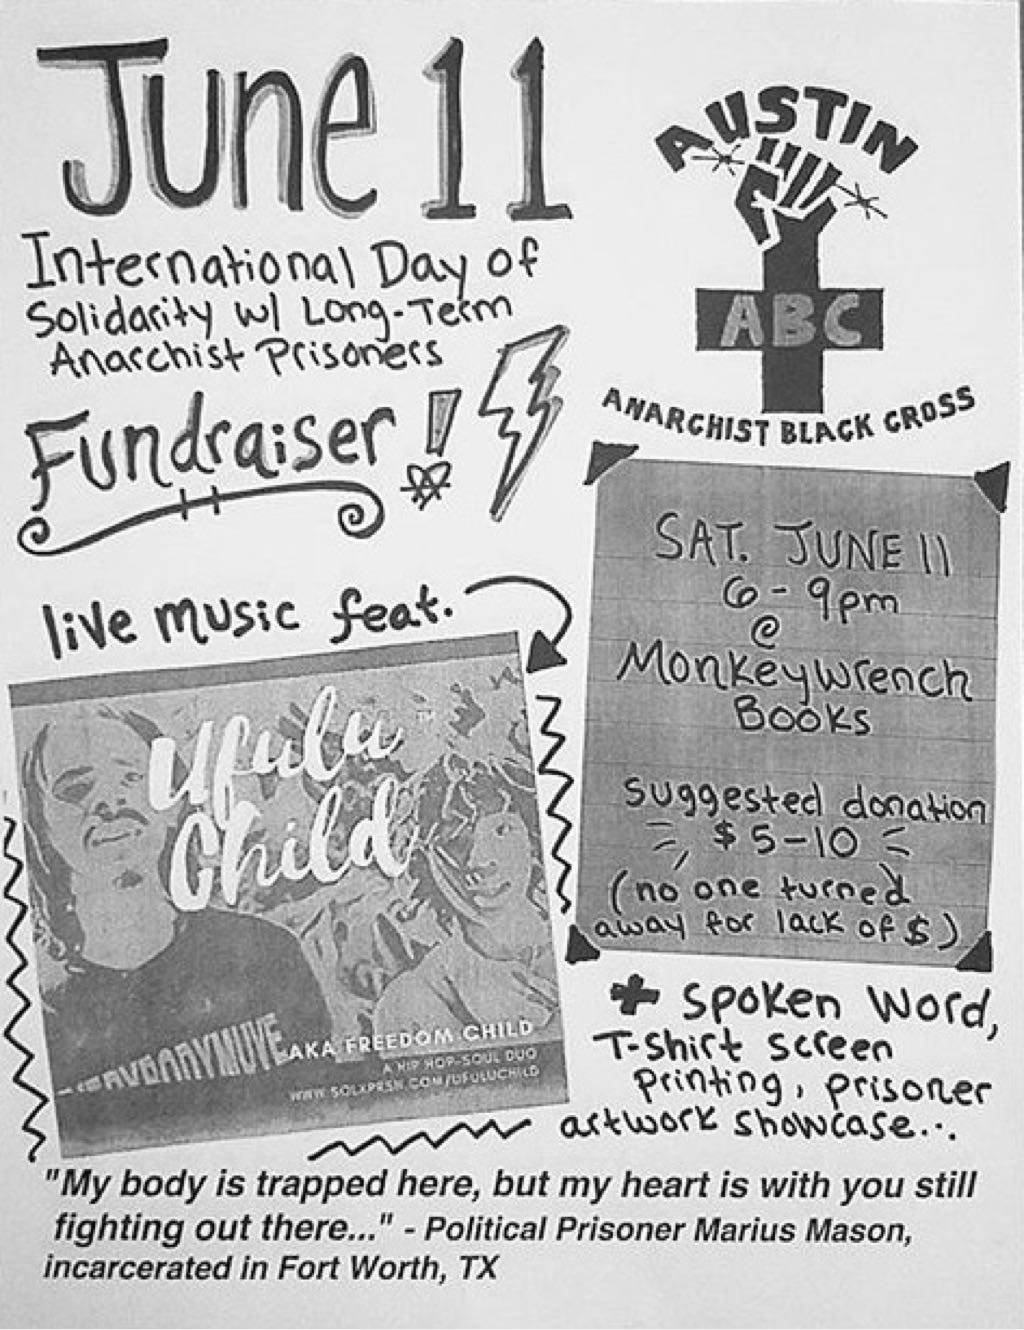 June 11
International Day of
Solidarity w/ Long-Term
Anarchist Prisoners
Fundraiser!
AUSTIN
ABC
ANARCHIST BLACK CROSS
SAT. JUNE 11
6-9pm
@
Monkeywrench
Books
suggested donation
$5-10
(no one turned
away for lack of $)
live music feat.
Ufulu™
Child
AKA FREEDOM CHILD
A HIP HOP-SOUL DUO
WWW.SOLXPRSN.COM/UFULUCHILD
+ spoken word,
T-shirt screen
printing, prisoner
artwork showcase...
"My body is trapped here, but my heart is with you still
fighting out there..." - Political Prisoner Marius Mason,
incarcerated in Fort Worth, TX